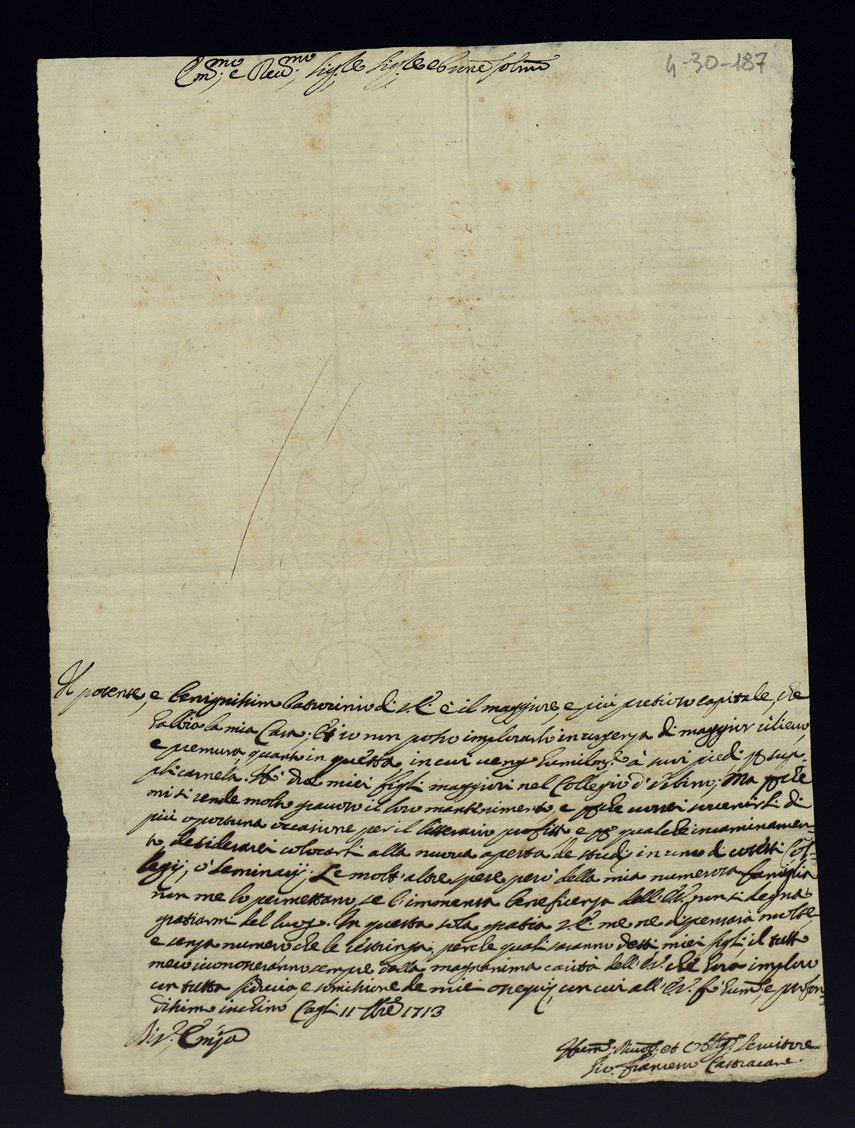 Em.mo e Rev.mo Sig.re Sig.re e
4-30-187
Il potente, e benignissimo Patrocinio di V.E. è il maggiore, e più pretioso capitale, che
habbia la mia Casa. Et io non posso implorarlo in urgenza di maggior rilievo,
e premura, quanto in questa in cui vengo humilm.te à suoi piedi p sup-
plicarnela. Hò due miei figli maggiori nel Collegio d'Urbino; Ma pche
mi si rende molto gravoso il loro mantenimento e pche vorrei servirsi di
più oportuna occasione per il litterario profitto e p qualche incaminamen-
to, desiderarei colocarli alla nuova apertura de studij in uno di cotesti Col-
legij, ò seminarij; Le molt'altre spese però della mia numerosa famiglia
non me lo permettano, se l'immensa beneficenza dell'E.V. non si degna
gratiarmi del luogo. In questa sola gratia V.E. me ne dispensarà molte,
e senza numero che le ristringa, per le quali saranno detti miei figli, il tutto
meco riconosceranno sempre dalla magnanima carità dell'E.V. che hora imploro
con tutta fiducia e somissione de miei ossequij, con cui all'E.V. fò hum.e e profon-
dissimo inchino Cagli 11 1713
Di V. Em.za
Hum.o Divot.o et Oblig.o Servitore
Gio. Francesco Castracane